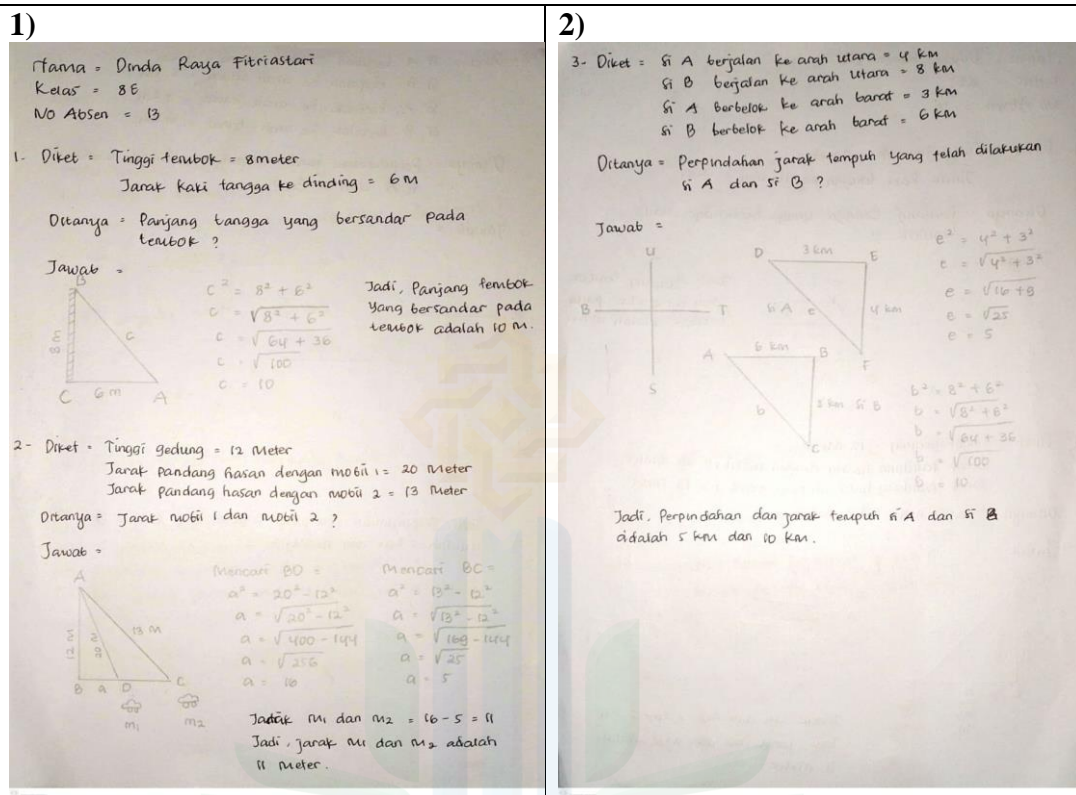 1)
Nama = Dinda Raya Fitriastari
Kelas = 8E
No Absen = 13
1. Diket = Tinggi tembok = 8 meter
Jarak kaki tangga ke dinding = 6 M
Ditanya = Panjang tangga yang bersandar pada
tembok ?
Jawab =
B
8 m
c
C 6 m A
c² = 8² + 6²
c = √8² + 6²
c = √64 + 36
c = √100
c = 10
Jadi, Panjang tembok
yang bersandar pada
tembok adalah 10 M.
2- Diket = Tinggi gedung = 12 Meter
Jarak pandang hasan dengan mobil 1 = 20 Meter
Jarak pandang hasan dengan mobil 2 = 13 Meter
Ditanya = Jarak mobil 1 dan mobil 2 ?
Jawab =
A
12 m
20 m
13 m
B a D C
m₁ m₂
Mencari BD =
a² = 20² - 12²
a = √20² - 12²
a = √400 - 144
a = √256
a = 16
Mencari BC =
a² = 13² - 12²
a = √13² - 12²
a = √169 - 144
a = √25
a = 5
Jarak m₁ dan m₂ = 16 - 5 = 11
Jadi, jarak m₁ dan m₂ adalah
11 meter.
2)
3- Diket = si A berjalan ke arah utara = 4 km
si B berjalan ke arah utara = 8 km
si A berbelok ke arah barat = 3 km
si B berbelok ke arah barat = 6 km
Ditanya = Perpindahan jarak tempuh yang telah dilakukan
si A dan si B ?
Jawab =
U
B T
S
D 3 km E
si A e 4 km
F
A 6 km B
b 8 km si B
C
e² = 4² + 3²
e = √4² + 3²
e = √16 + 9
e = √25
e = 5
b² = 8² + 6²
b = √8² + 6²
b = √64 + 36
b = √100
b = 10
Jadi, Perpindahan dan jarak tempuh si A dan si B
adalah 5 km dan 10 km.